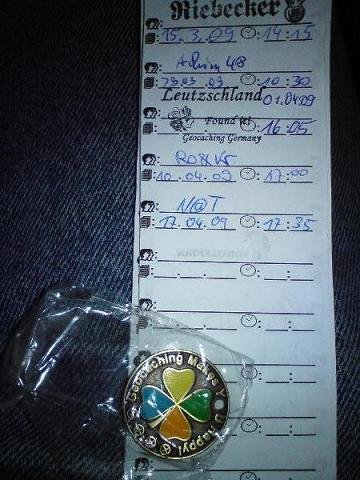 Riebecker
15.3.09 14:15
Achim 48
29.03.09 10:30
Leutzschland 01.04.09
Found it! 16:05
Geocaching Germany
10.04.09 17:00
N@T
17.04.09 17:35
Geocaching Makes Y U Happy!